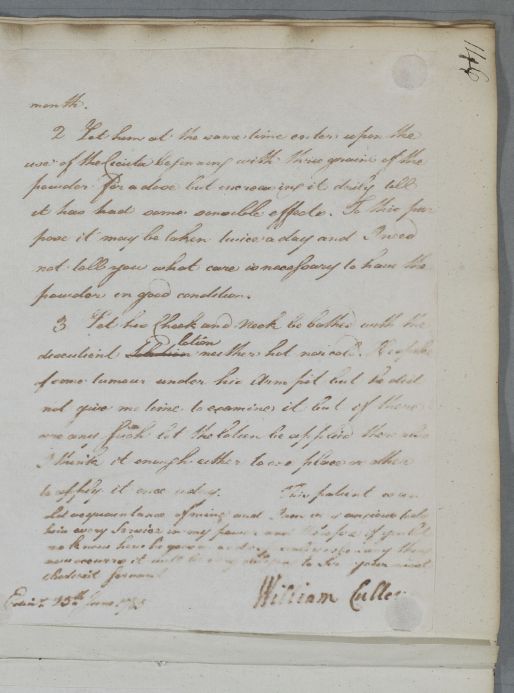 146
month.
2 Let him at the same time enter upon the
use of the Cicuta beginning with three grains of the
powder for a dose but increasing it daily till
it has had some sensible effects. To this pur
pose it may be taken twice a day and I need
not tell you what care is necessary to have the
powder in good condition.
3 Let his Cheek and Neck be bathed with the
discutient lotion neither hot nor cold. He spoke
of some tumour under his Arm pit but he did
not give me time to examine it but if there
are any such let the lotion be applied there also
I think it enough either to one place or other
to apply it once a day. This patient is an
old acquaintance of mine and I am anxious to
him every service in my power
me know how he goes on and if any thing
new occurrs it will be very
obedient servant
William Cullen
Edinr. 15th June